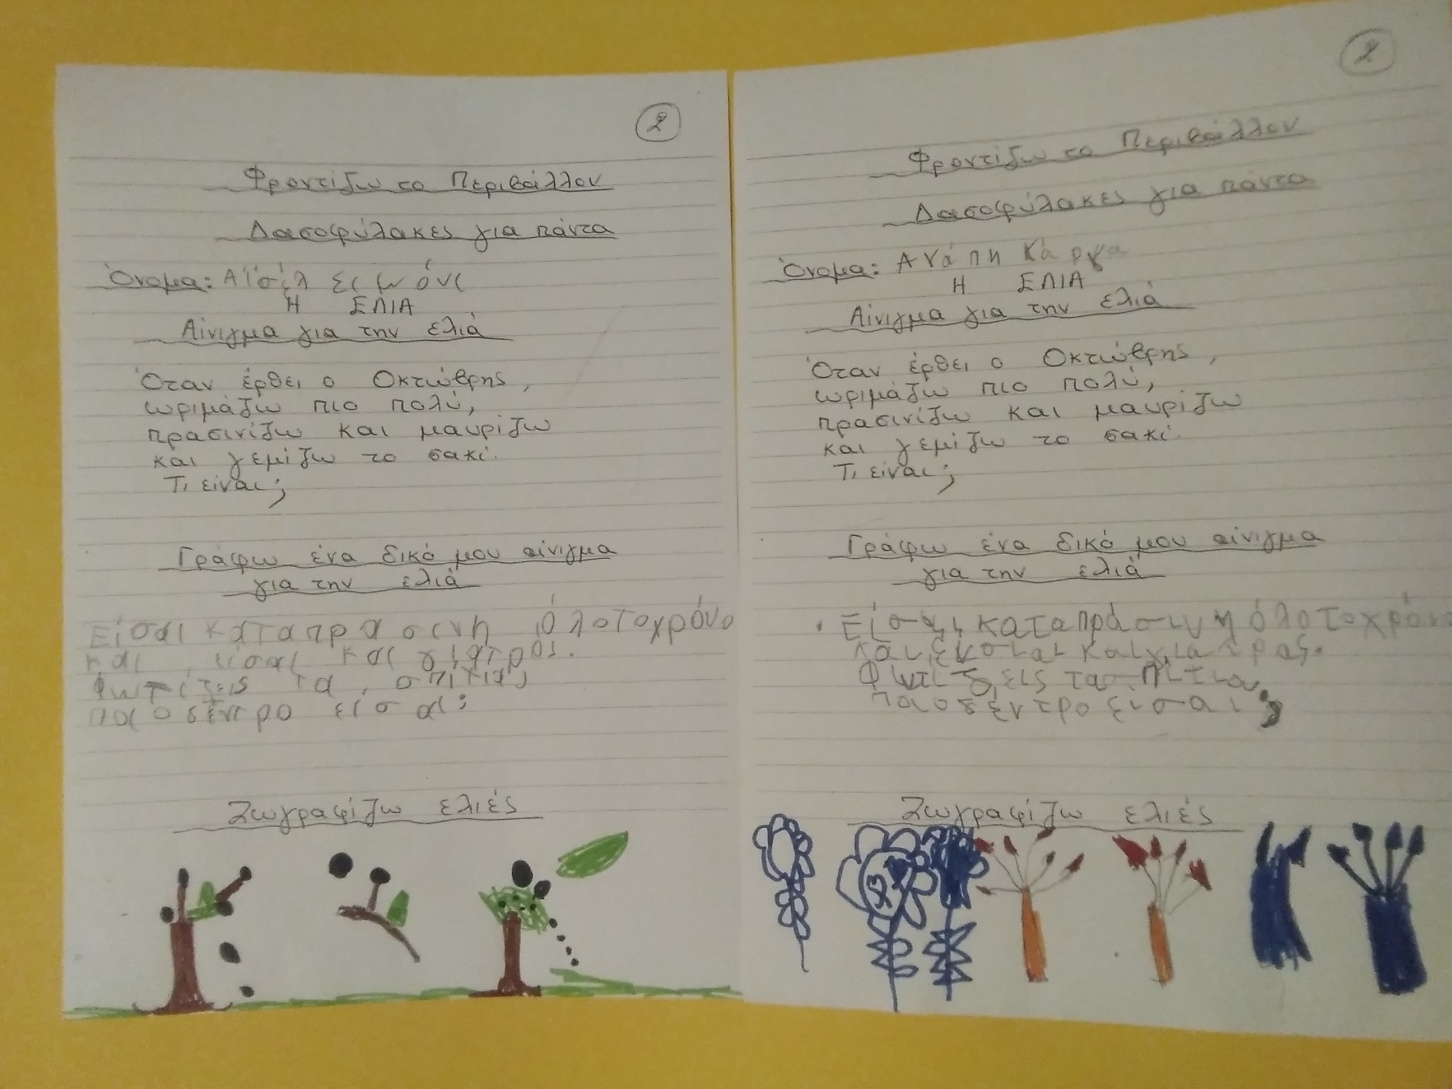 2
Φροντίζω το Περιβάλλον
Δασοφύλακες για πάντα
Όνομα:
Η ΕΛΙΑ
Αίνιγμα για την ελιά
Όταν έρθει ο Οκτώβρης,
ωριμάζω πιο πολύ,
πρασινίζω και μαυρίζω
και γεμίζω το σακί.
Τι είναι;
Γράφω ένα δικό μου αίνιγμα
για την ελιά
Είσαι καταπρασινη όλοτοχρόνο
και είσαι και γιατρος.
Φωτίζεις τα σπίτια,
ποιο δέντρο είσαι;
Ζωγραφίζω ελιές
2
Φροντίζω το Περιβάλλον
Δασοφύλακες για πάντα
Όνομα: Ανάπη Κάργα
Η ΕΛΙΑ
Αίνιγμα για την ελιά
Όταν έρθει ο Οκτώβρης,
ωριμάζω πιο πολύ,
πρασινίζω και μαυρίζω
και γεμίζω το σακί.
Τι είναι;
Γράφω ένα δικό μου αίνιγμα
για την ελιά
Είσαι καταπράσινη
Φωτίζεις
Ζωγραφίζω ελιές